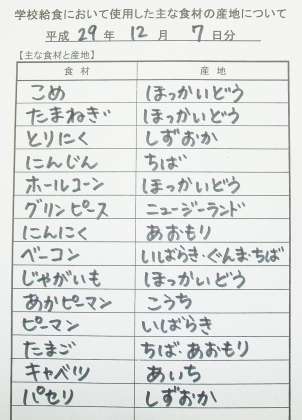 学校給食において使用した主な食材の産地について
平成 29 年 12 月 7 日分
【主な食材と産地】
食材 産地
こめ ほっかいどう
たまねぎ ほっかいどう
とりにく しずおか
にんじん ちば
ホールコーン ほっかいどう
グリンピース ニュージーランド
にんにく あおもり
ベーコン いばらき・ぐんま・ちば
じゃがいも ほっかいどう
あかピーマン こうち
ピーマン いばらき
たまご ちば・あおもり
キャベツ あいち
パセリ しずおか